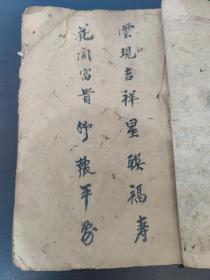 雲現吉祥星聯福壽
花開富貴竹報平安